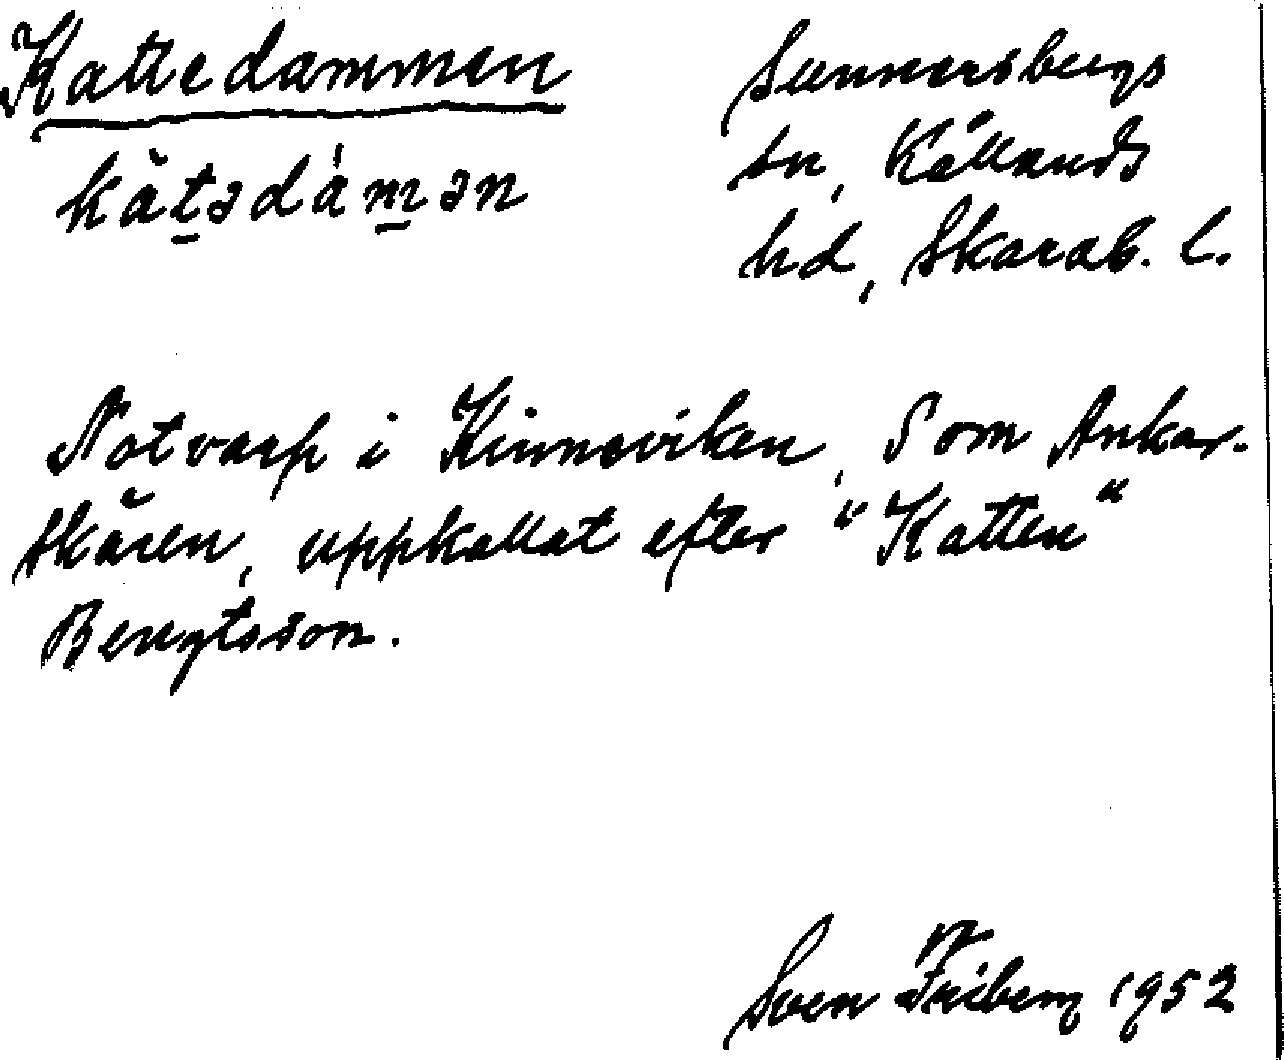 Kattedammen
kàt̠ədám̠ən
Sunnersbergs
sn, Kållands
hd, Skarab. l.
Notvarp i Kinneviken, Som Ankar-
skären, uppkallat efter "Katten"
Bengtsson.
Sven Friberg 1952